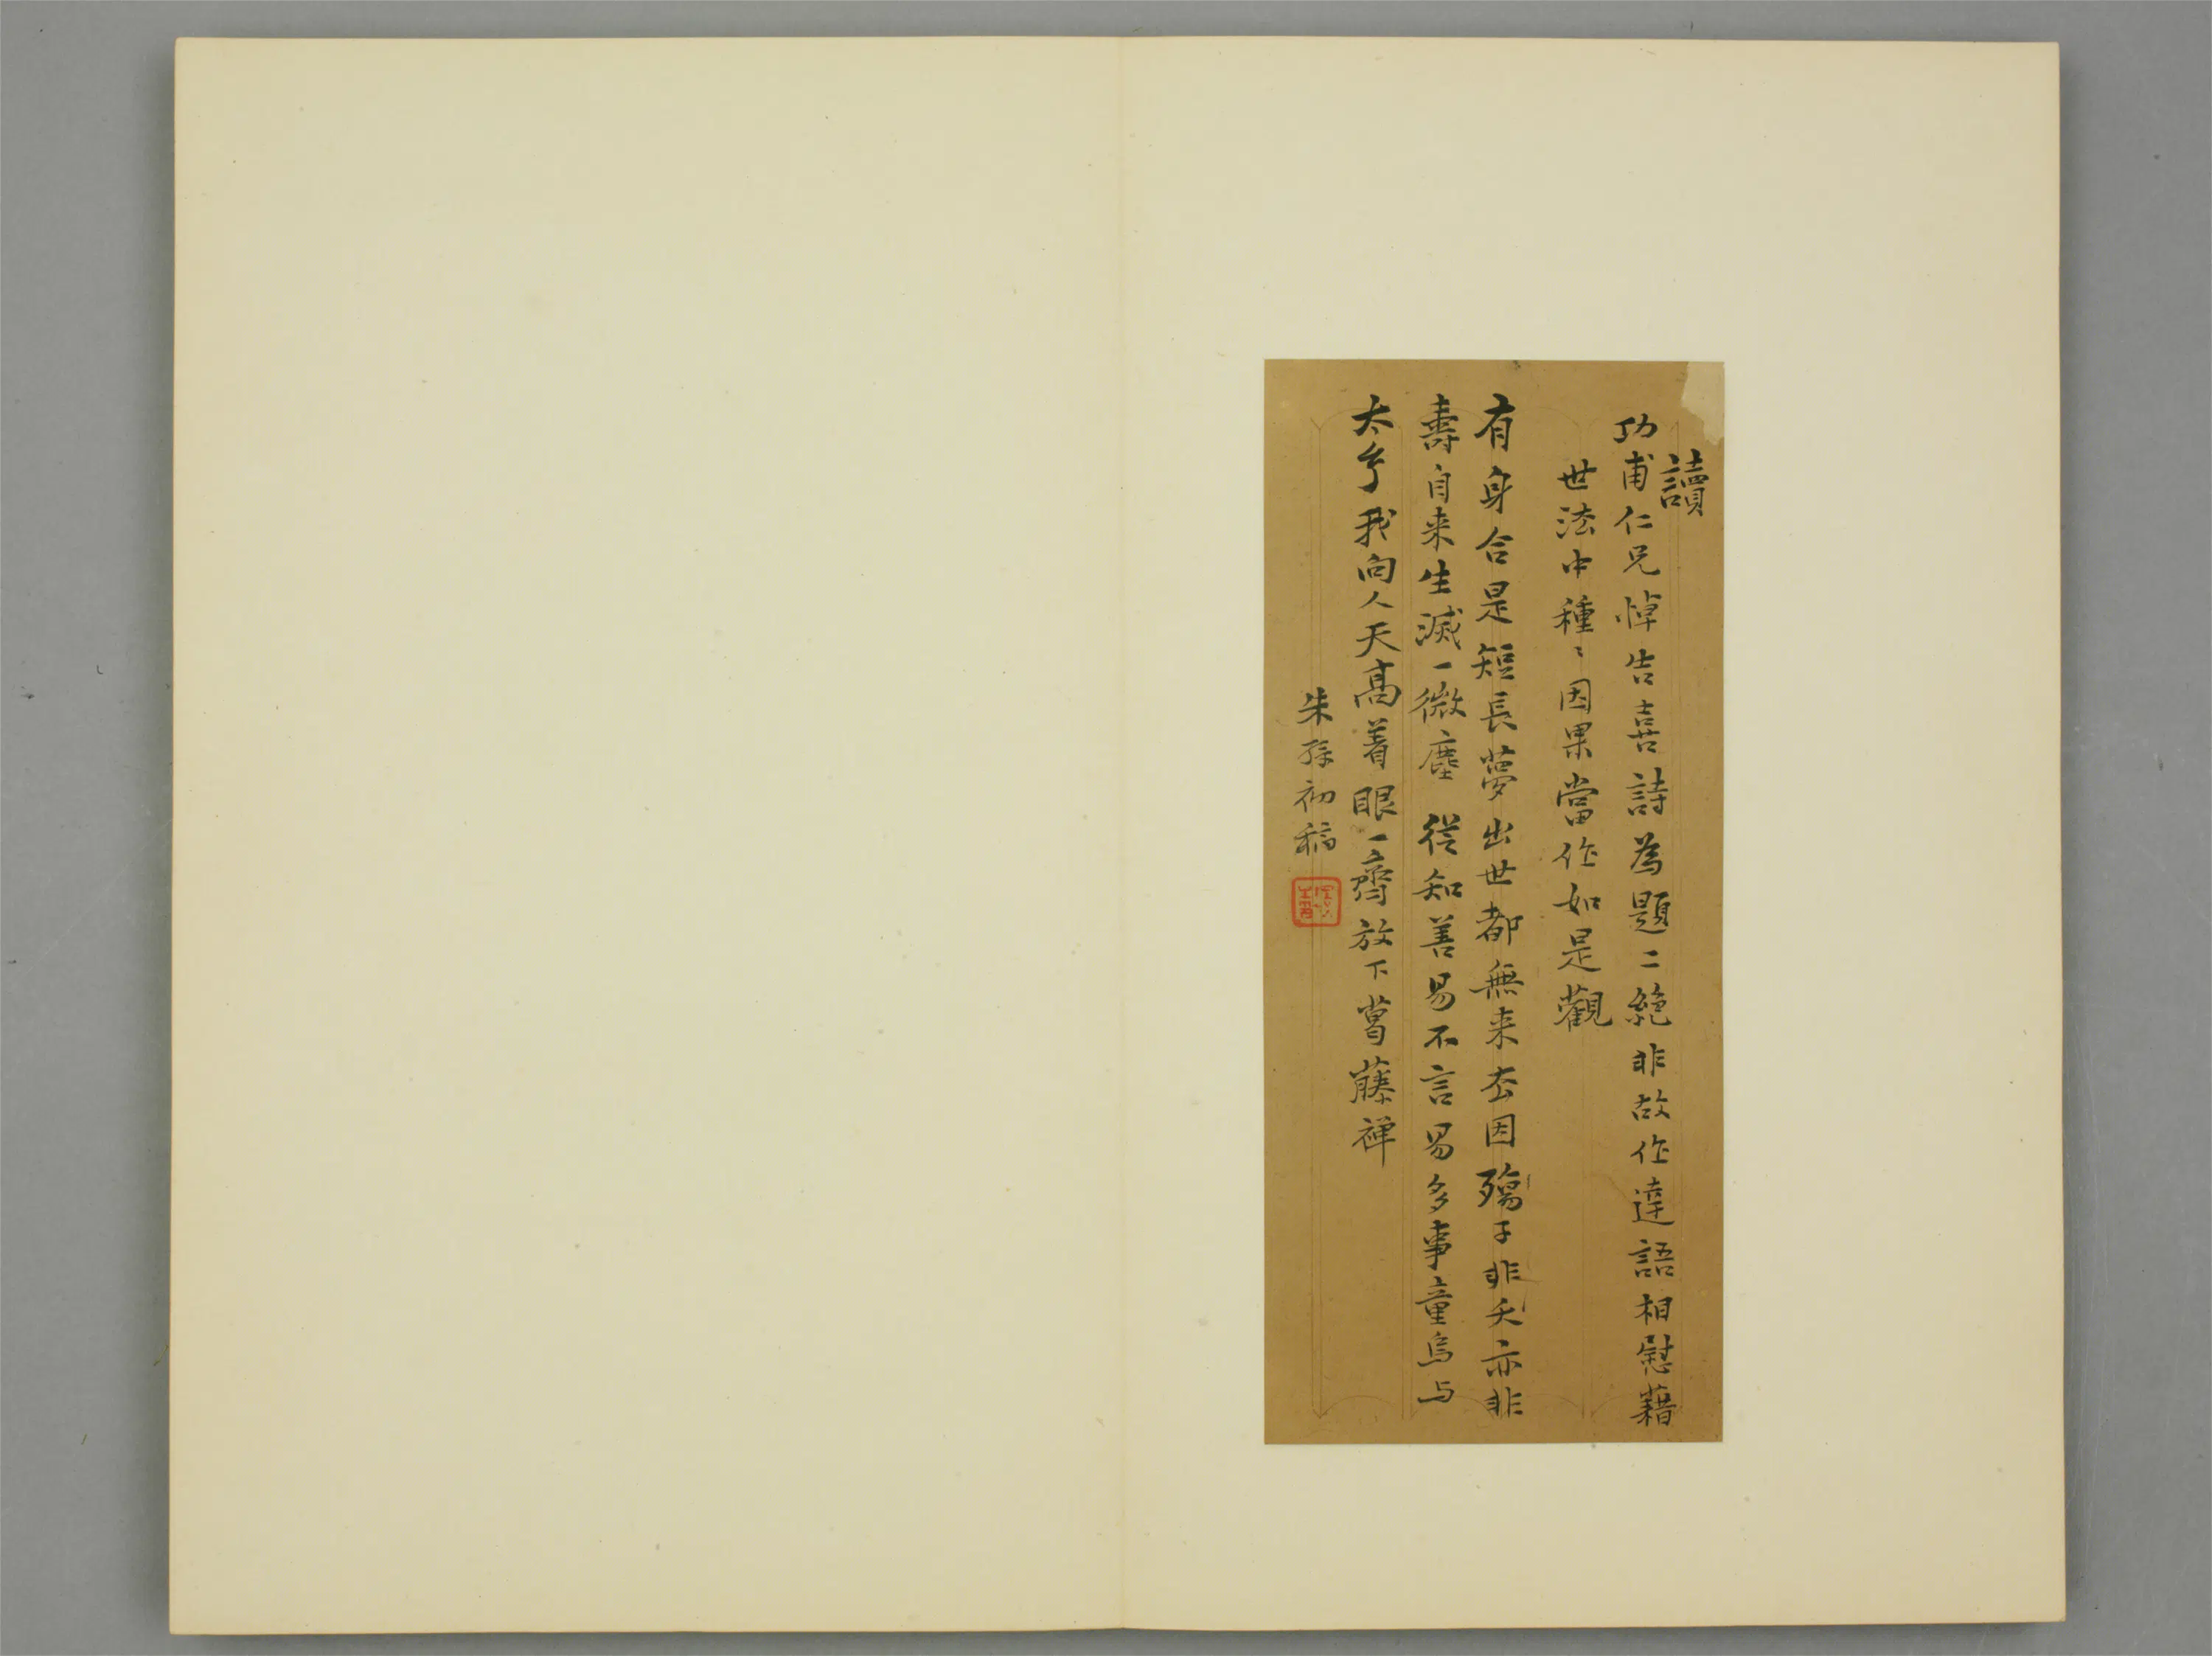 讀
功甫仁兄悼吉喜詩為題二絕非故作達語相慰藉
世法中種〻因果當作如是觀
有身合是短長夢出世都無来去因殤子非夭亦非
壽自来生滅一微塵 從知善易不言易多事童烏与
太玄我向人天高着眼一齊放下葛藤禪
朱孫初稿